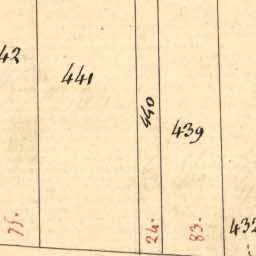 42
441
440
439
432
75.
24.
83.